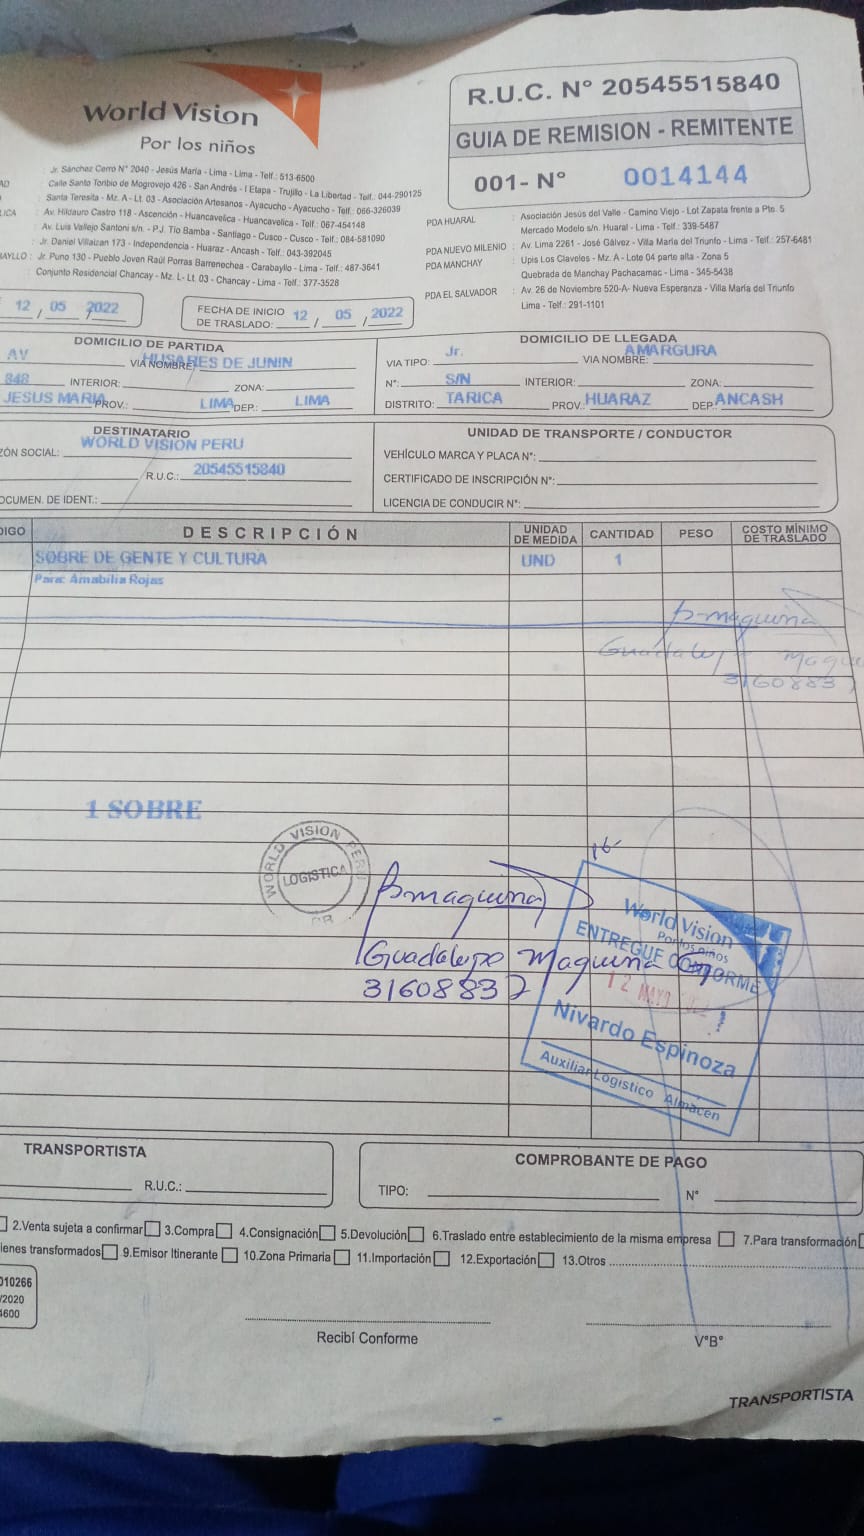 World Vision
Por los niños
R.U.C. N° 20545515840
GUIA DE REMISION - REMITENTE
001- N° 0014144
: Jr. Sánchez Cerro N° 2040 - Jesús María - Lima - Lima - Telf.: 513-6500
Calle Santo Toribio de Mogrovejo 426 - San Andrés - I Etapa - Trujillo - La Libertad - Telf.: 044-290125
Santa Teresita - Mz. A - Lt. 03 - Asociación Artesanos - Ayacucho - Ayacucho - Telf.: 066-326039
: Av. Hildauro Castro 118 - Ascención - Huancavelica - Huancavelica - Telf.: 067-454148
: Av. Luis Vallejo Santoni s/n. - P.J. Tío Bamba - Santiago - Cusco - Cusco - Telf.: 084-581090
: Jr. Daniel Villaizan 173 - Independencia - Huaraz - Ancash - Telf.: 043-392045
: Jr. Puno 130 - Pueblo Joven Raúl Porras Barrenechea - Carabayllo - Lima - Telf.: 487-3641
: Conjunto Residencial Chancay - Mz. L- Lt. 03 - Chancay - Lima - Telf.: 377-3528
PDA HUARAL : Asociación Jesús del Valle - Camino Viejo - Lot Zapata frente a Pte. 5
Mercado Modelo s/n. Huaral - Lima - Telf.: 339-5487
PDA NUEVO MILENIO : Av. Lima 2261 - José Gálvez - Villa María del Triunfo - Lima - Telf.: 257-6481
PDA MANCHAY : Upis Los Claveles - Mz. A - Lote 04 parte alta - Zona 5
Quebrada de Manchay Pachacamac - Lima - 345-5438
PDA EL SALVADOR : Av. 26 de Noviembre 520-A- Nueva Esperanza - Villa María del Triunfo
Lima - Telf.: 291-1101
12 / 05 / 2022
FECHA DE INICIO DE TRASLADO: 12 / 05 / 2022
DOMICILIO DE PARTIDA
AV VIA NOMBRE: HUSARES DE JUNIN
848 INTERIOR: ZONA:
JESUS MARIA PROV.: LIMA DEP.: LIMA
DOMICILIO DE LLEGADA
VIA TIPO: Jr. VIA NOMBRE: AMARGURA
N°: S/N INTERIOR: ZONA:
DISTRITO: TARICA PROV.: HUARAZ DEP.: ANCASH
DESTINATARIO
ZÓN SOCIAL: WORLD VISION PERU
R.U.C.: 20545515840
OCUMEN. DE IDENT.:
UNIDAD DE TRANSPORTE / CONDUCTOR
VEHÍCULO MARCA Y PLACA N°:
CERTIFICADO DE INSCRIPCIÓN N°:
LICENCIA DE CONDUCIR N°:
DIGO DESCRIPCIÓN UNIDAD DE MEDIDA CANTIDAD PESO COSTO MÍNIMO DE TRASLADO
SOBRE DE GENTE Y CULTURA UND 1
Para: Amabilia Rojas
1 SOBRE
WORLD VISION PERU
LOGISTICA
Guadalupe Maquina
31608837
World Vision
Por los niños
ENTREGUE CONFORME
12 MAYO
Nivardo Espinoza
Auxiliar Logistico Almacen
TRANSPORTISTA
R.U.C.:
COMPROBANTE DE PAGO
TIPO: N°
2.Venta sujeta a confirmar 3.Compra 4.Consignación 5.Devolución 6.Traslado entre establecimiento de la misma empresa 7.Para transformación
ienes transformados 9.Emisor Itinerante 10.Zona Primaria 11.Importación 12.Exportación 13.Otros
010266
/2020
4600
Recibí Conforme
V°B°
TRANSPORTISTA